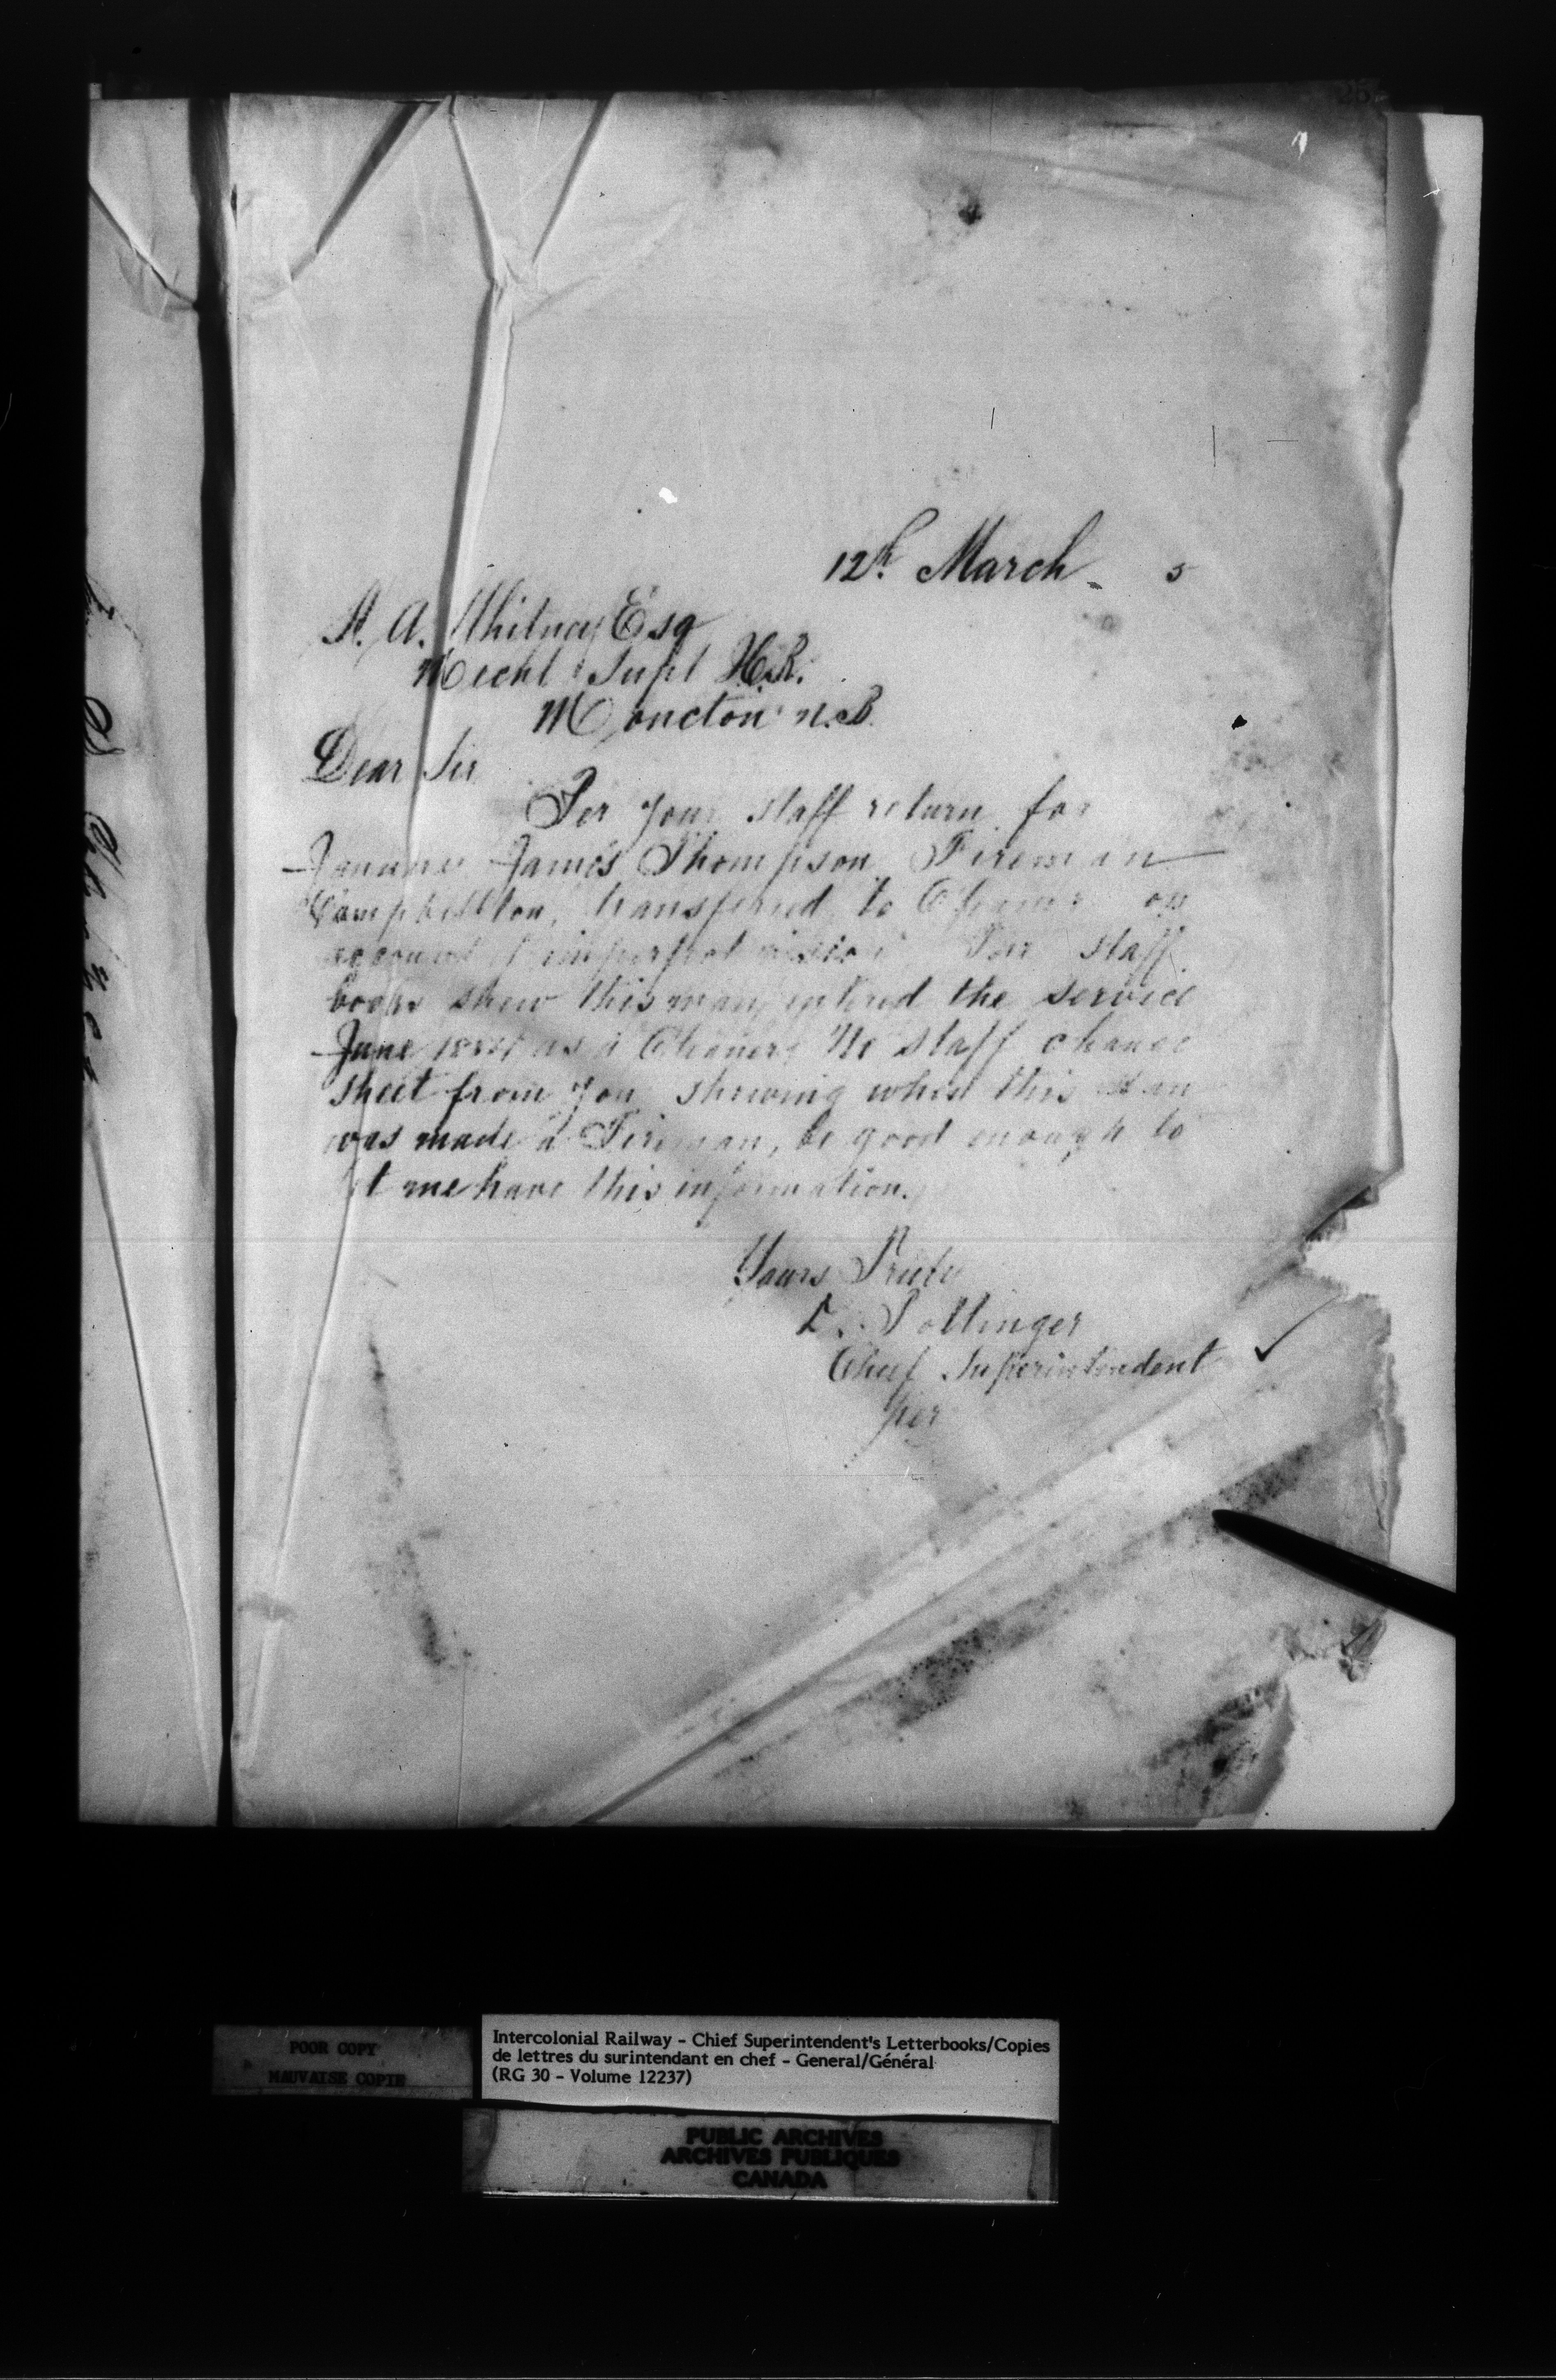 12th March 5
H. A. Whitney Esq
Mechl Supt
Moncton N.B.
Dear Sir
Per your staff return for
James Thompson Fireman
Campbellton, transferred to on
account of imperfect vision Our staff
books shew this man entered the service
June as a Cleaner, No staff change
sheet from you shewing when this man
was made a Fireman, be good enough to
let me have this information.
Yours Truly
D. Pottinger
Chief Superintendent
per
POOR COPY
MAUVAISE COPIE
Intercolonial Railway - Chief Superintendent's Letterbooks/Copies
de lettres du surintendant en chef - General/Général
(RG 30 - Volume 12237)
PUBLIC ARCHIVES
ARCHIVES PUBLIQUES
CANADA